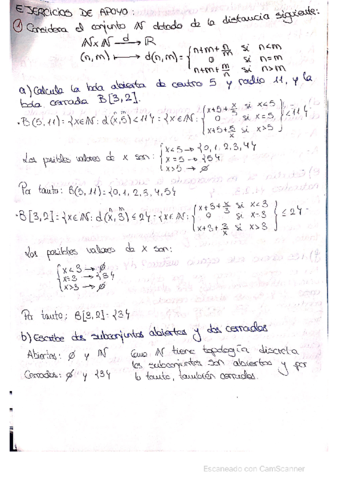 EJERCICIOS DE APOYO:
① Considera el conjunto ℕ dotado de la distancia siguiente:
ℕ×ℕ —d→ ℝ
(n,m) ⟼ d(n,m) = { n+m+n/m si n<m
0 si n=m
n+m+m/n si n>m
a) Calcula la bola abierta de centro 5 y radio 11, y la
bola cerrada B[3,2].
· B(5,11) = {x∈ℕ: d(x,5)<11} = {x∈ℕ: { x+5+x/5 si x<5
0 si x=5
x+5+5/x si x>5 } <11}
Los posibles valores de x son: { x<5 → {0,1,2,3,4}
x=5 → {5}
x>5 → ∅
Por tanto: B(5,11) = {0,1,2,3,4,5}
· B[3,2] = {x∈ℕ: d(x,3)≤2} = {x∈ℕ: { x+3+x/3 si x<3
0 si x=3
x+3+3/x si x>3 } ≤2}
Los posibles valores de x son:
{ x<3 → ∅
x=3 → {3}
x>3 → ∅
Por tanto; B[3,2] = {3}
b) Escribe dos subconjuntos abiertos y dos cerrados
Abiertos: ∅ y ℕ Como ℕ tiene topología discreta
los subconjuntos son abiertos y por
Cerrados: ∅ y {3} lo tanto, también cerrados.
Escaneado con CamScanner